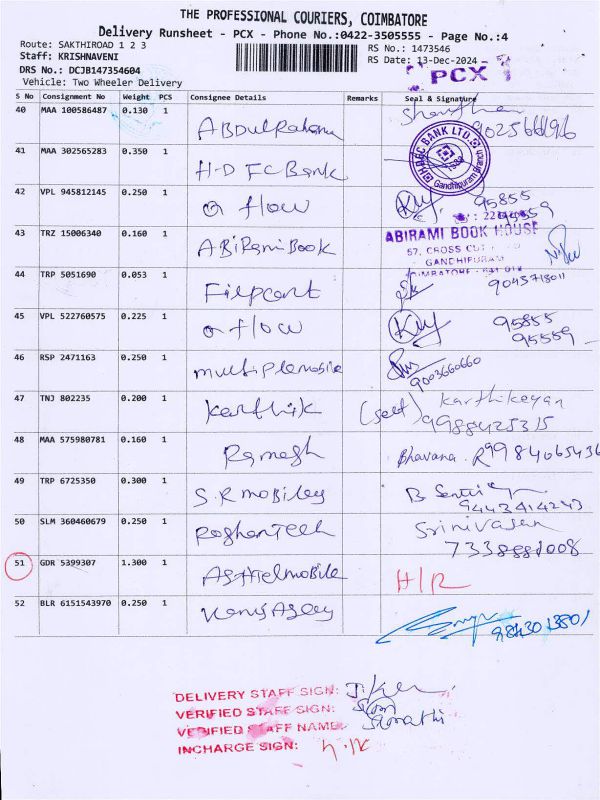 THE PROFESSIONAL COURIERS, COIMBATORE
Delivery Runsheet - PCX - Phone No.:0422-3505555 - Page No.:4
Route: SAKTHIROAD 1 2 3
RS No.: 1473546
Staff: KRISHNAVENI
RS Date: 13-Dec-2024 -
DRS No.: DCJB147354604
PCX
Vehicle: Two Wheeler Delivery
S No Consignment No Weight PCS Consignee Details Remarks Seal & Signature
40 MAA 100586487 0.130 1 ABdulRahman
41 MAA 302565283 0.350 1 H-D FC Bank HDFC BANK LTD. Gandhipuram Branch
42 VPL 945812145 0.250 1 a flow 95855
43 TRZ 15006340 0.160 1 ABiRami Book ABIRAMI BOOK HOUSE
57, CROSS CUT
GANDHIPURAM
44 TRP 5051690 0.053 1 9043718011
45 VPL 522760575 0.225 1 a flow 95855
95559
46 RSP 2471163 0.250 1 multiplemobile 9003660660
47 TNJ 802235 0.200 1 Karthik (self) Karthikeyan
9988425315
48 MAA 575980781 0.160 1 Ramesh Bhavana. R 9984065436
49 TRP 6725350 0.300 1 S.R mobiles 9443414243
50 SLM 360460679 0.250 1 RoshanTech Srinivasan
7338881008
51 GDR 5399307 1.300 1 H/R
52 BLR 6151543970 0.250 1
DELIVERY STAFF SIGN:
VERIFIED STAFF SIGN:
VERIFIED STAFF NAME:
INCHARGE SIGN: